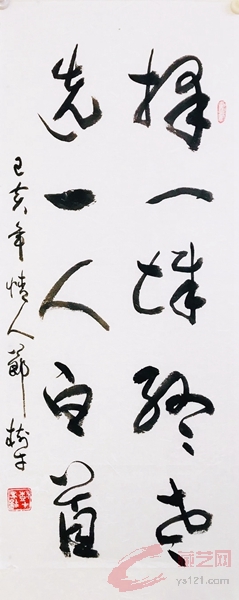 择一城终老
选一人白首
己亥年情人節
藏艺网
ys121.com